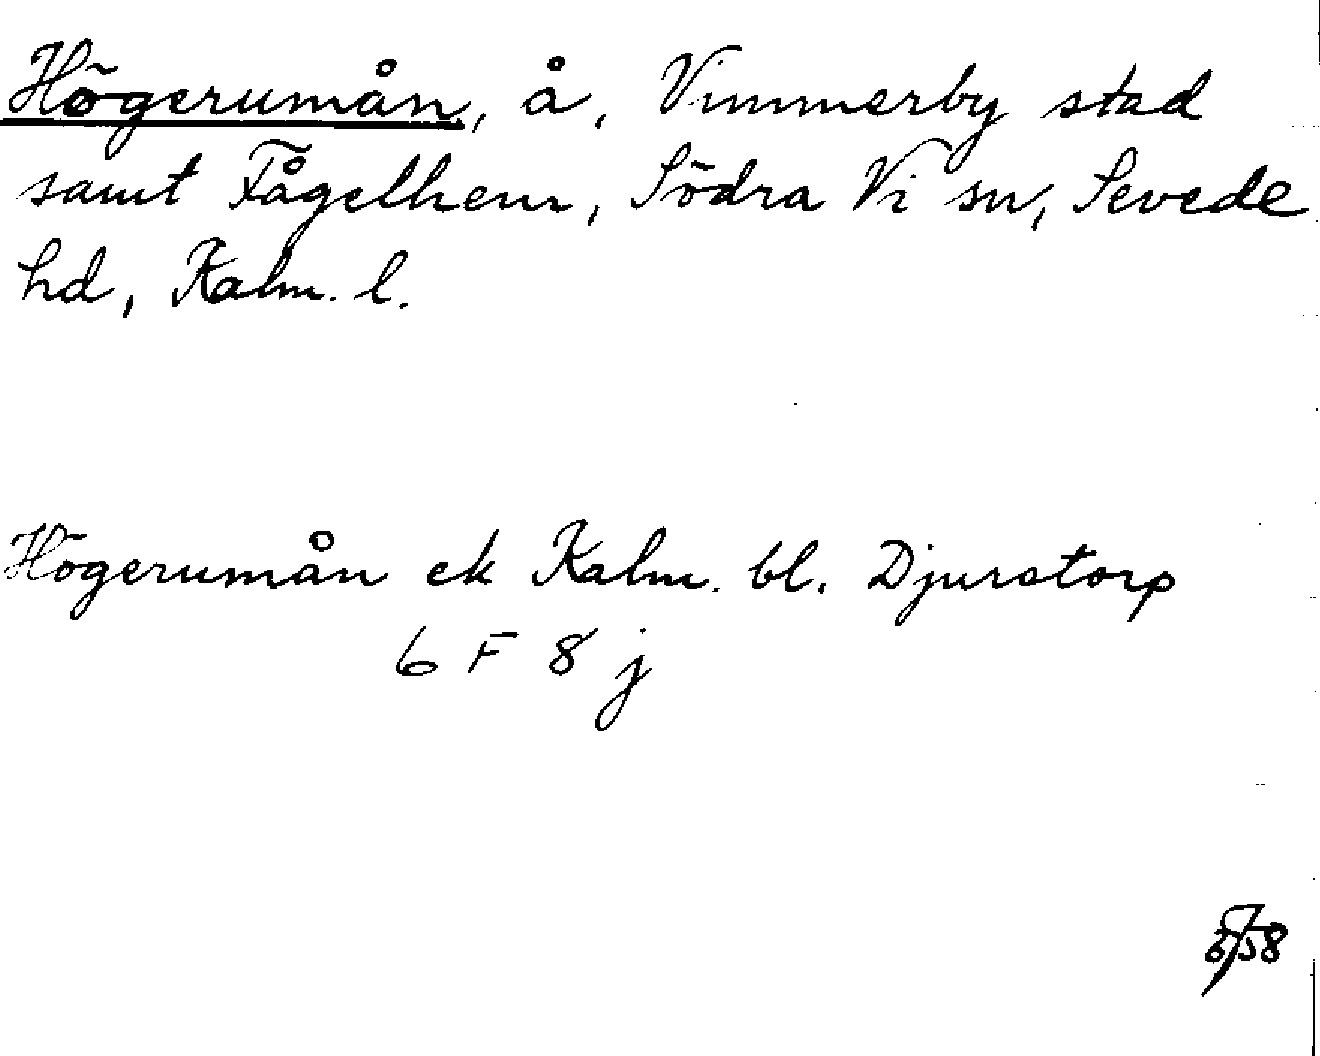 Högerumån, å, Vimmerby stad
samt Fågelhem, Södra Vi sn, Sevede
hd, Kalm. l.
Högerumån ek Kalm. bl. Djurstorp
6 F 8 j